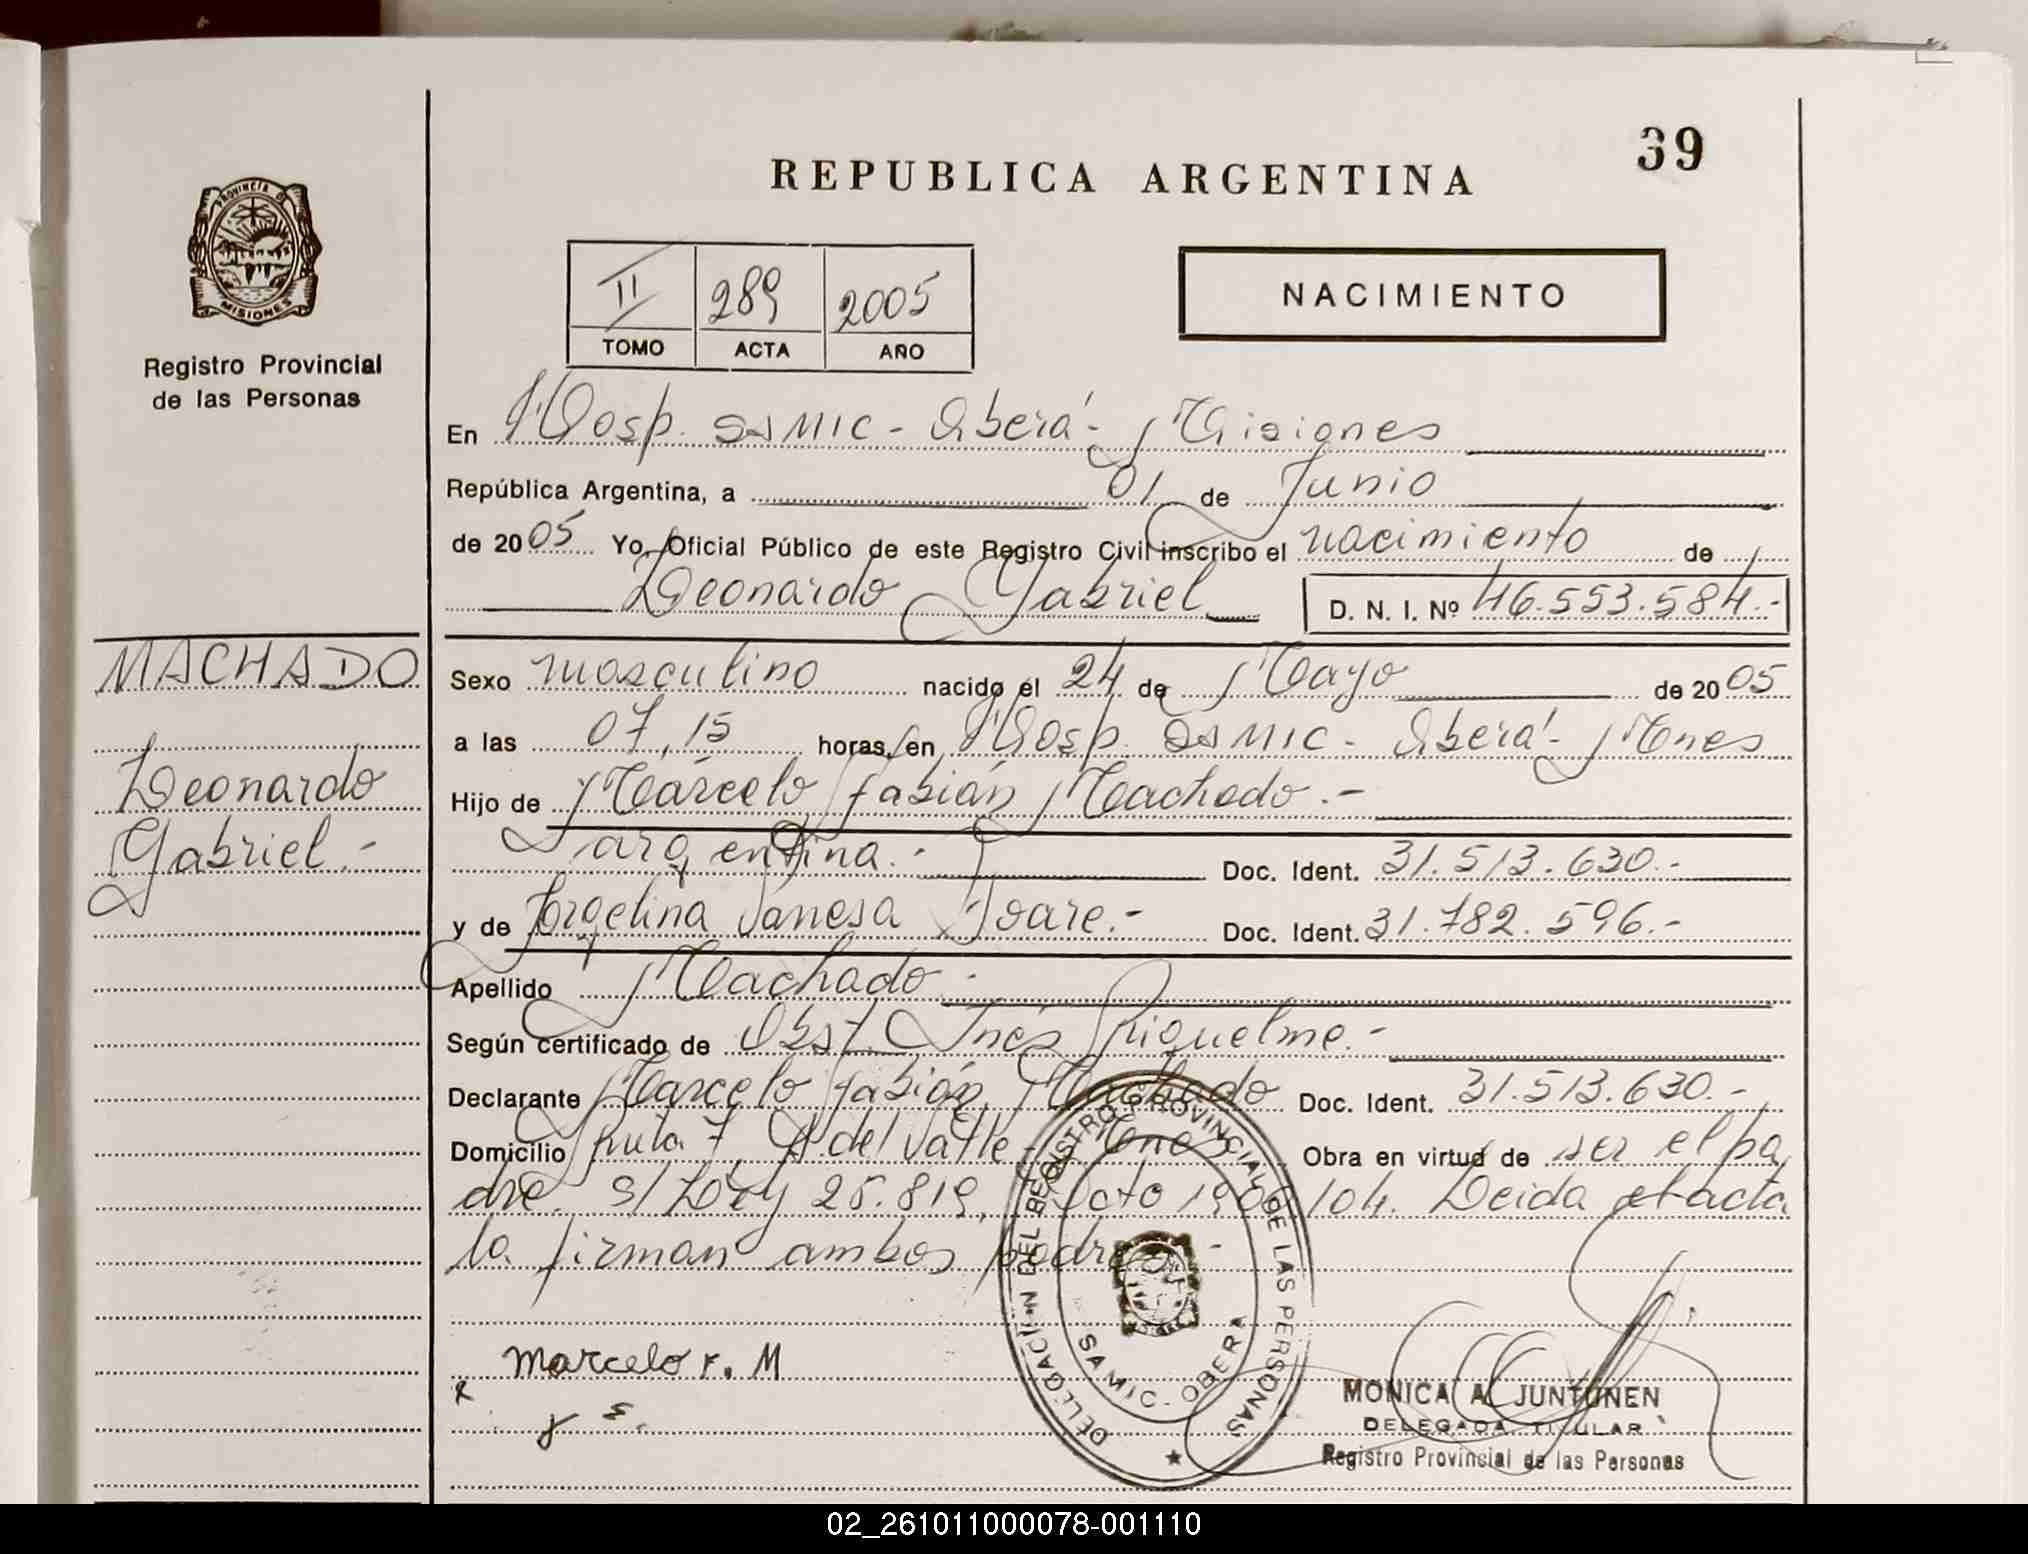 39
REPUBLICA ARGENTINA
PROVINCIA D
MISIONES
Registro Provincial
de las Personas
II 289 2005
TOMO ACTA AÑO
NACIMIENTO
En Hosp. SAMIC - Oberá - Misiones
República Argentina, a 01 de Junio
de 2005 Yo, Oficial Público de este Registro Civil inscribo el nacimiento de
Leonardo Gabriel D. N. I. Nº 46.553.584.-
MACHADO
Leonardo
Gabriel.-
Sexo masculino nacido el 24 de Mayo de 2005
a las 07,15 horas, en Hosp. SAMIC - Oberá - Mnes
Hijo de Marcelo Fabián Machado.-
argentina.- Doc. Ident. 31.513.630.-
y de Jorgelina Vanesa Doc. Ident. 31.782.596.-
Apellido Machado.-
Según certificado de Obst. Inés Riquelme.-
Declarante Marcelo Fabián Machado Doc. Ident. 31.513.630.-
Domicilio Ruta 7, A. del Valle - Mnes Obra en virtud de ser el pa
dre. S/Ley 25.819, Dcto 190 /04. Leída el acta
la firman ambos padres.-
Marcelo F. M
DELEGACIÓN DEL REGISTRO PROVINCIAL DE LAS PERSONAS
SAMIC - OBERA
MONICA A. JUNTUNEN
DELEGADA TITULAR
Registro Provincial de las Personas
02_261011000078-001110